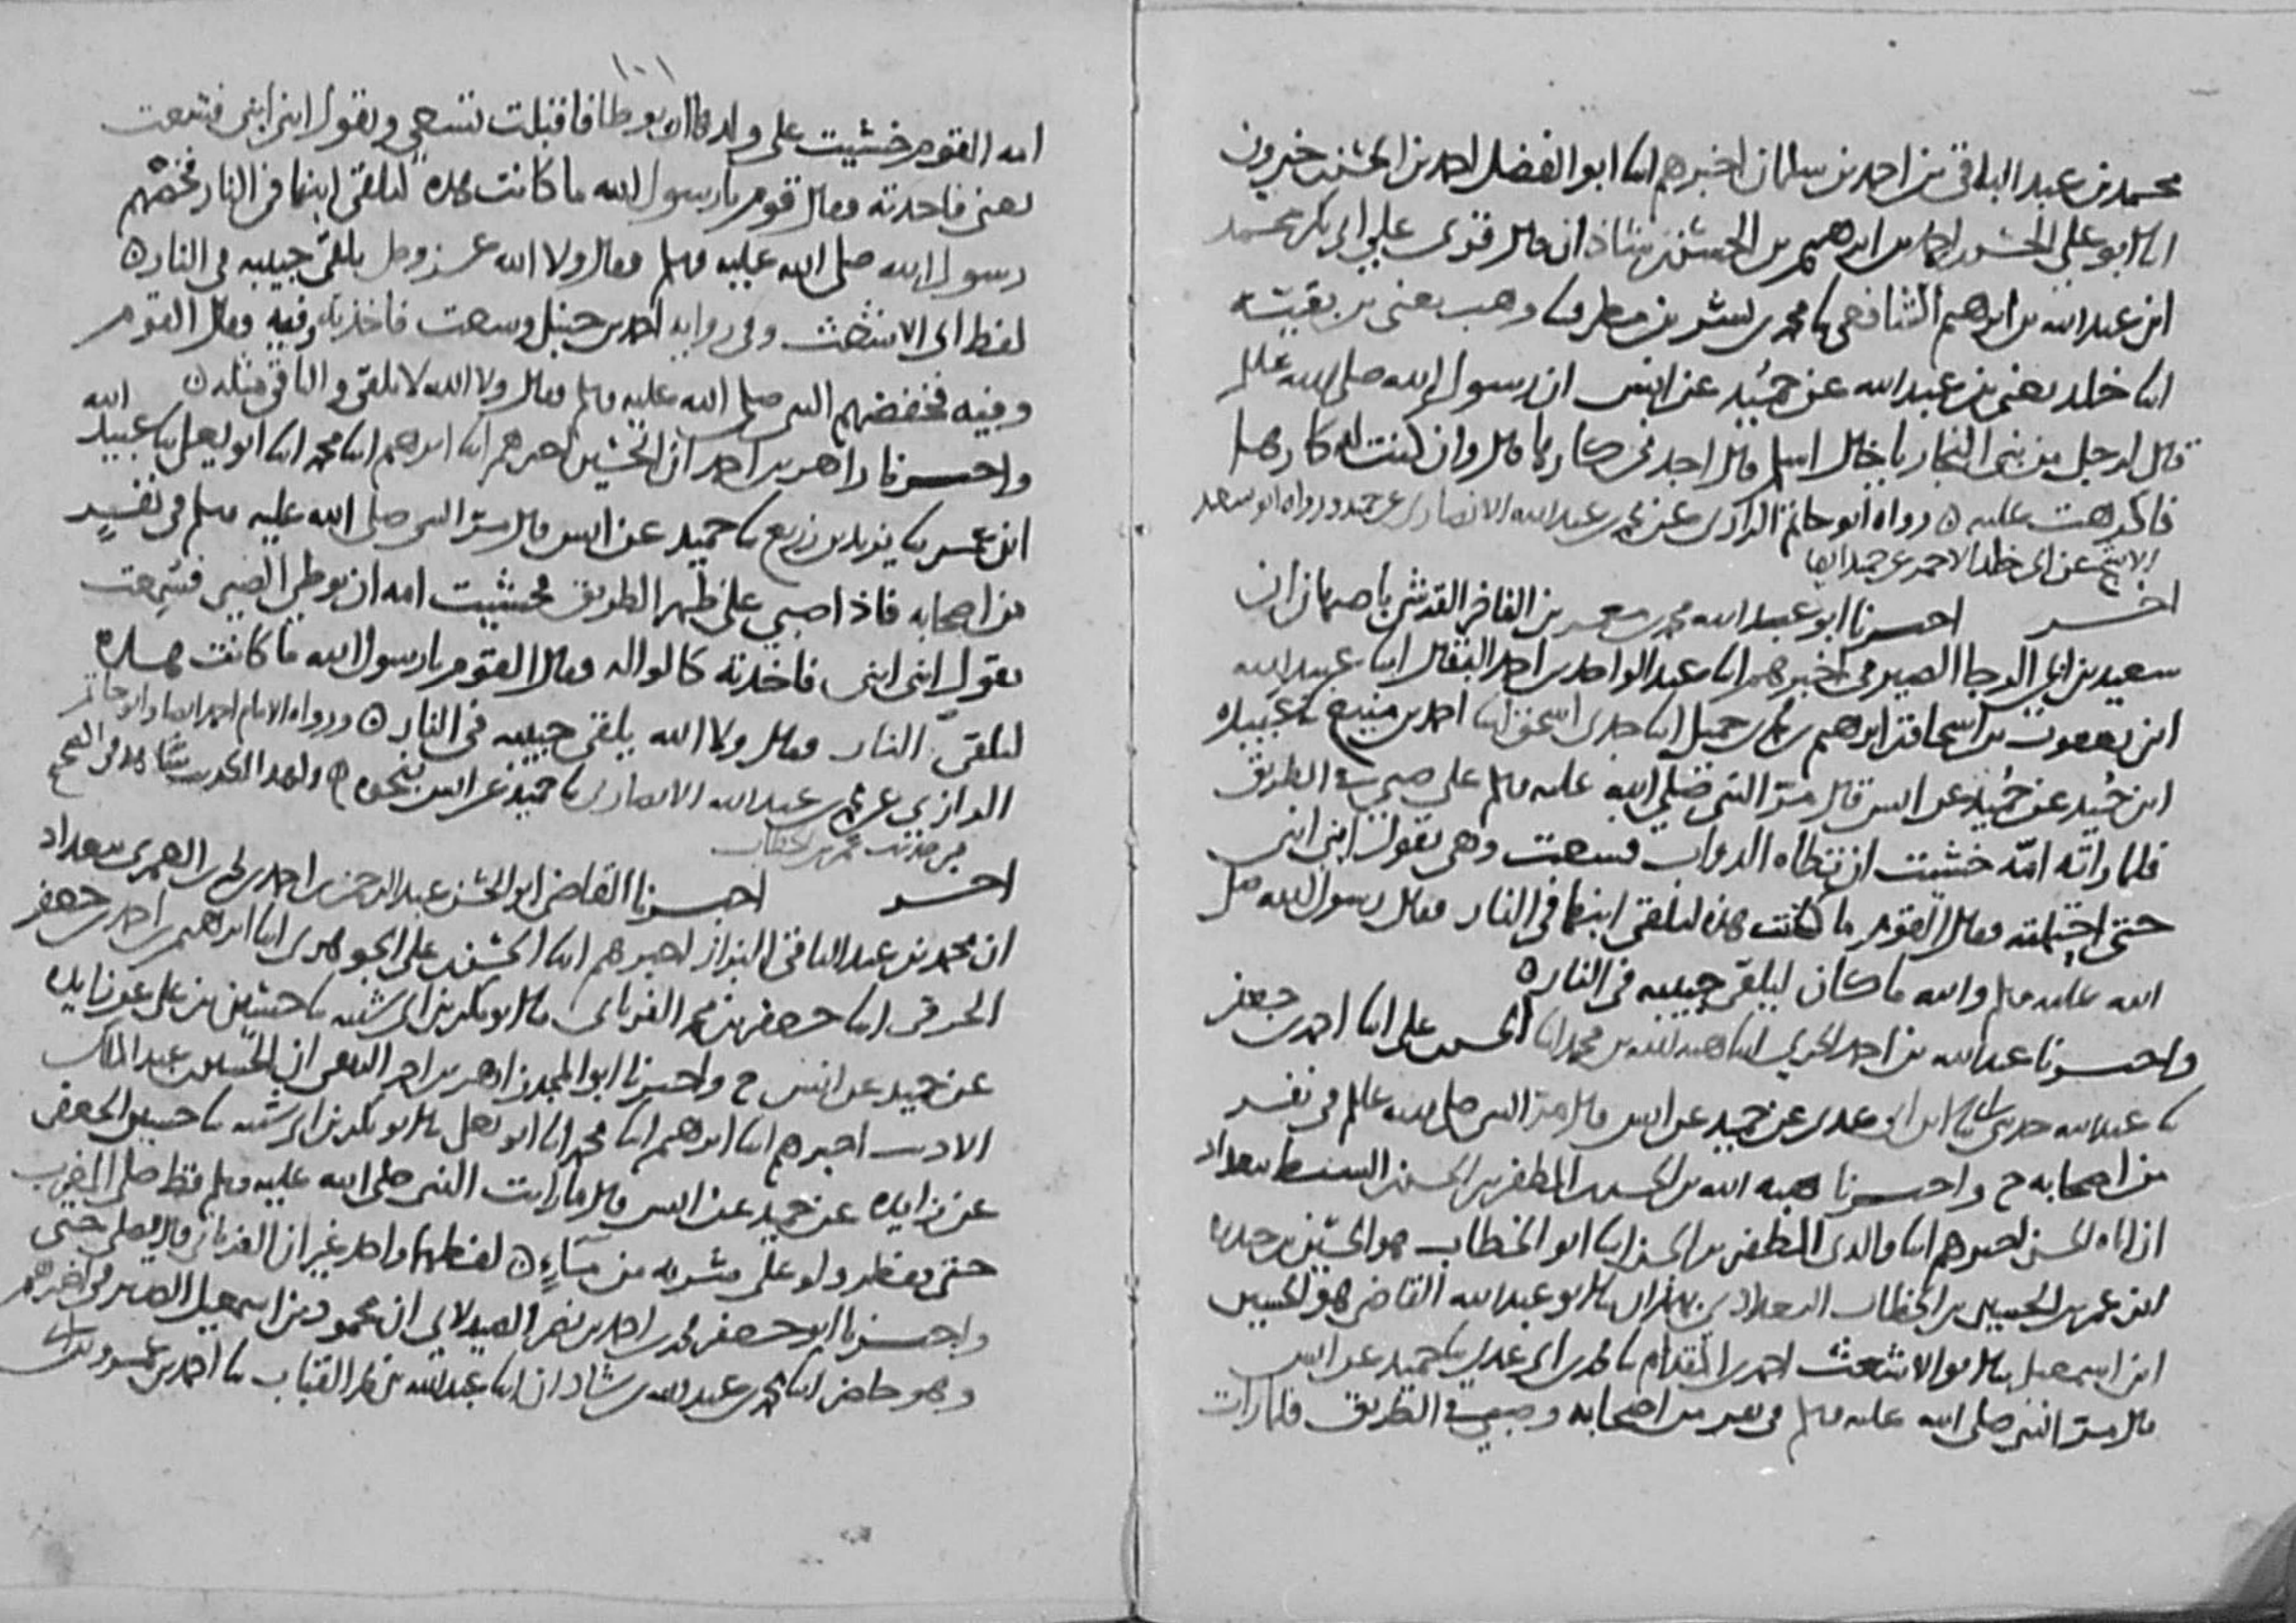 محمد بن عبد الباقي بن احمد بن سلمان اخبرهم ابنا ابو الفضل احمد بن الحسن خيرون
ابنا ابو علي الحسن بن ابرهيم بن الحسن بن شاذان قال قرئ علي ابي بكر محمد
ابن عبد الله بن ابرهيم الشافعي ثنا محمد بن بشر بن مطر ثنا وهب يعني بن بقية
ابنا خلد يعني بن عبد الله عن حميد عن انس ان رسول الله صلى الله عليه وسلم
قال لرجل من بني النجار يا خال اسلم قال اجدني كارها قال وان كنت كارها
فاكرهت عليه ه رواه ابو حاتم الرازي عن محمد بن عبد الله الانصاري عن حميد ورواه ابو سعيد
الاشج عن ابي خالد الاحمر عن حميد ايضا
اخــر احبرنا ابو عبد الله محمد بن معمر بن الفاخر القرشي باصبهان ان
سعيد بن ابي الرجا الصيرفي اخبرهم ابنا عبد الواحد بن احمد البقال ابنا عبيد الله
ابن يعقوب بن اسحاق بن ابرهيم بن محمد بن جميل ابنا جدي اسحق ابنا احمد بن منيع ثنا عبيده
ابن حميد عن حميد عن انس قال مر النبي صلى الله عليه وسلم على صبي في الطريق
فلما راته امه خشيت ان تطاه الدواب فسعت وهي تقول ابني ابني
حتى احتملته فقال القوم ما كانت هذه لتلقي ابنها في النار فقال رسول الله صلى
الله عليه وسلم والله ما كان ليلقي حبيبه في النار ه
واحبرنا عبد الله بن احمد الحربي ابنا هبة الله بن محمد ابنا الحسن بن علي ابنا احمد بن جعفر
ثنا عبد الله حدثني ابي ثنا ابن ابي عدي عن حميد عن انس قال مر النبي صلى الله عليه وسلم في نفر
من اصحابه ح واحبرنا هبة الله بن الحسن بن المظفر بن الحسن السبط ببغداد
ان اباه الحسن اخبرهم ابنا والدي المظفر بن الحسن ابنا ابو الخطاب هو الحسين بن حيدره
ابن عمر بن الحسين بن الخطاب البغدادي ثنا ابو عبد الله القاضي هو الحسين
ابن اسمعيل ثنا ابو الاشعث احمد بن المقدام ثنا محمد بن ابي عدي ثنا حميد عن انس
قال مر النبي صلى الله عليه وسلم في نفر من اصحابه وصبي في الطريق فلما رات
١٠١
امه القوم خشيت على ولدها ان يوطا فاقبلت تسعى وتقول ابني ابني فسعت
يعني فاخذته فقال قوم يا رسول الله ما كانت هذه لتلقي ابنها في النار فخفضهم
رسول الله صلى الله عليه وسلم وقال ولا الله عز وجل يلقي حبيبه في النار ه
لفظ ابي الاشعث وفي رواية احمد بن حنبل وسعت فاخذته وفيه فقال القوم
وفيه فخفضهم النبي صلى الله عليه وسلم فقال ولا الله لا يلقي والباقي مثله ه
واحبرنا زاهر بن احمد ان الحسين اخبرهم ابنا ابرهيم ابنا محمد ابنا ابو يعلى ثنا عبيد الله
ابن عمر ثنا يزيد بن زريع ثنا حميد عن انس قال مر النبي صلى الله عليه وسلم في نفر
من اصحابه فاذا صبي على ظهر الطريق فخشيت امه ان يوطى الصبي فسعت
تقول ابني ابني فاخذته فقال القوم يا رسول الله ما كانت هذه
لتلقي النار فقال ولا الله يلقي حبيبه في النار ه ورواه الامام احمد ايضا وابو حاتم
الرازي عن محمد بن عبد الله الانصاري ثنا حميد عن انس بنحوه ه ولهذا الحديث شاهد في الصحيح
من حديث عمر بن الخطاب
اخــر احبرنا القاضي ابو الحسن عبد الرحمن بن احمد بن العمري ببغداد
ان محمد بن عبد الباقي البزاز اخبرهم ابنا الحسن بن علي الجوهري ابنا ابرهيم بن احمد بن جعفر
الخرقي ابنا جعفر بن محمد الفريابي ثنا ابو بكر بن ابي شيبه ثنا حسين بن علي عن زايده
عن حميد عن انس ح واحبرنا ابو المجد زاهر بن احمد الثقفي ان الحسين بن عبد الملك
الاديب اخبرهم ابنا ابرهيم ابنا محمد ابنا ابو يعلى ثنا ابو بكر بن ابي شيبه ثنا حسين الجعفي
عن زايده عن حميد عن انس قال ما رايت النبي صلى الله عليه وسلم قط صلى المغرب
حتى يفطر ولو على شربه من ماء ه لفظهما واحد غير ان الفريابي قال يصلي حتى
واحبرنا ابو جعفر محمد بن احمد بن نصر الصيدلاني ان محمود بن اسمعيل الصيرفي اخبرهم
وهو حاضر ابنا محمد بن عبد الله بن شاذان ابنا عبد الله بن محمد القباب ثنا احمد بن عمرو